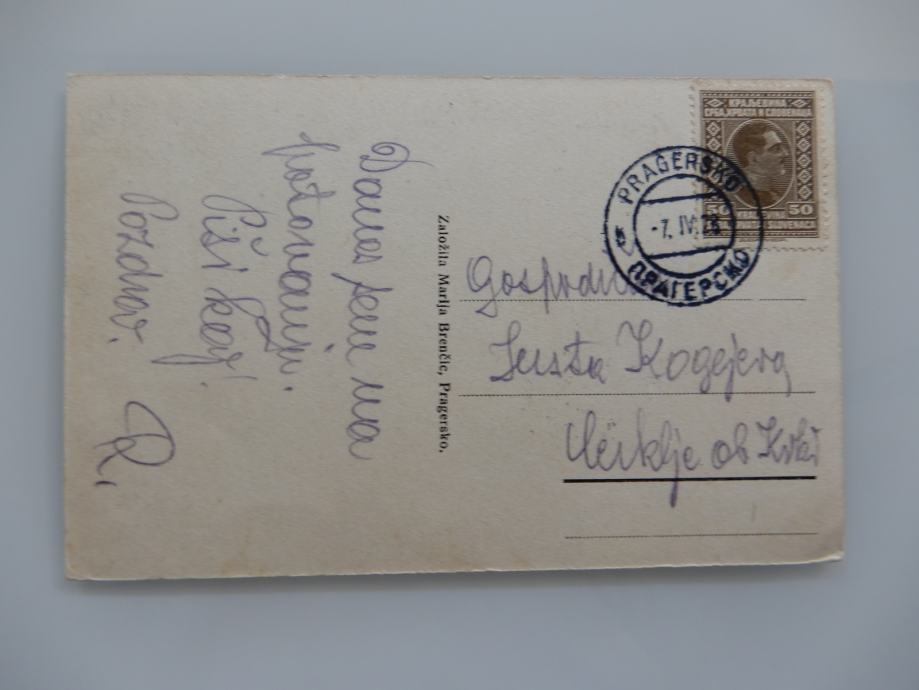 Danes sem na
potovanju.
Piši kaj!
Pozdrav.
R.
Založila Marija Brenčič, Pragersko.
КРАЉЕВИНА
СРБА, ХРВАТА И СЛОВЕНАЦА
50 50
PRAGERSKO
-7. IV. 28
ПРАГЕРСКО
Gospodična
Kogejeva
ob Krki